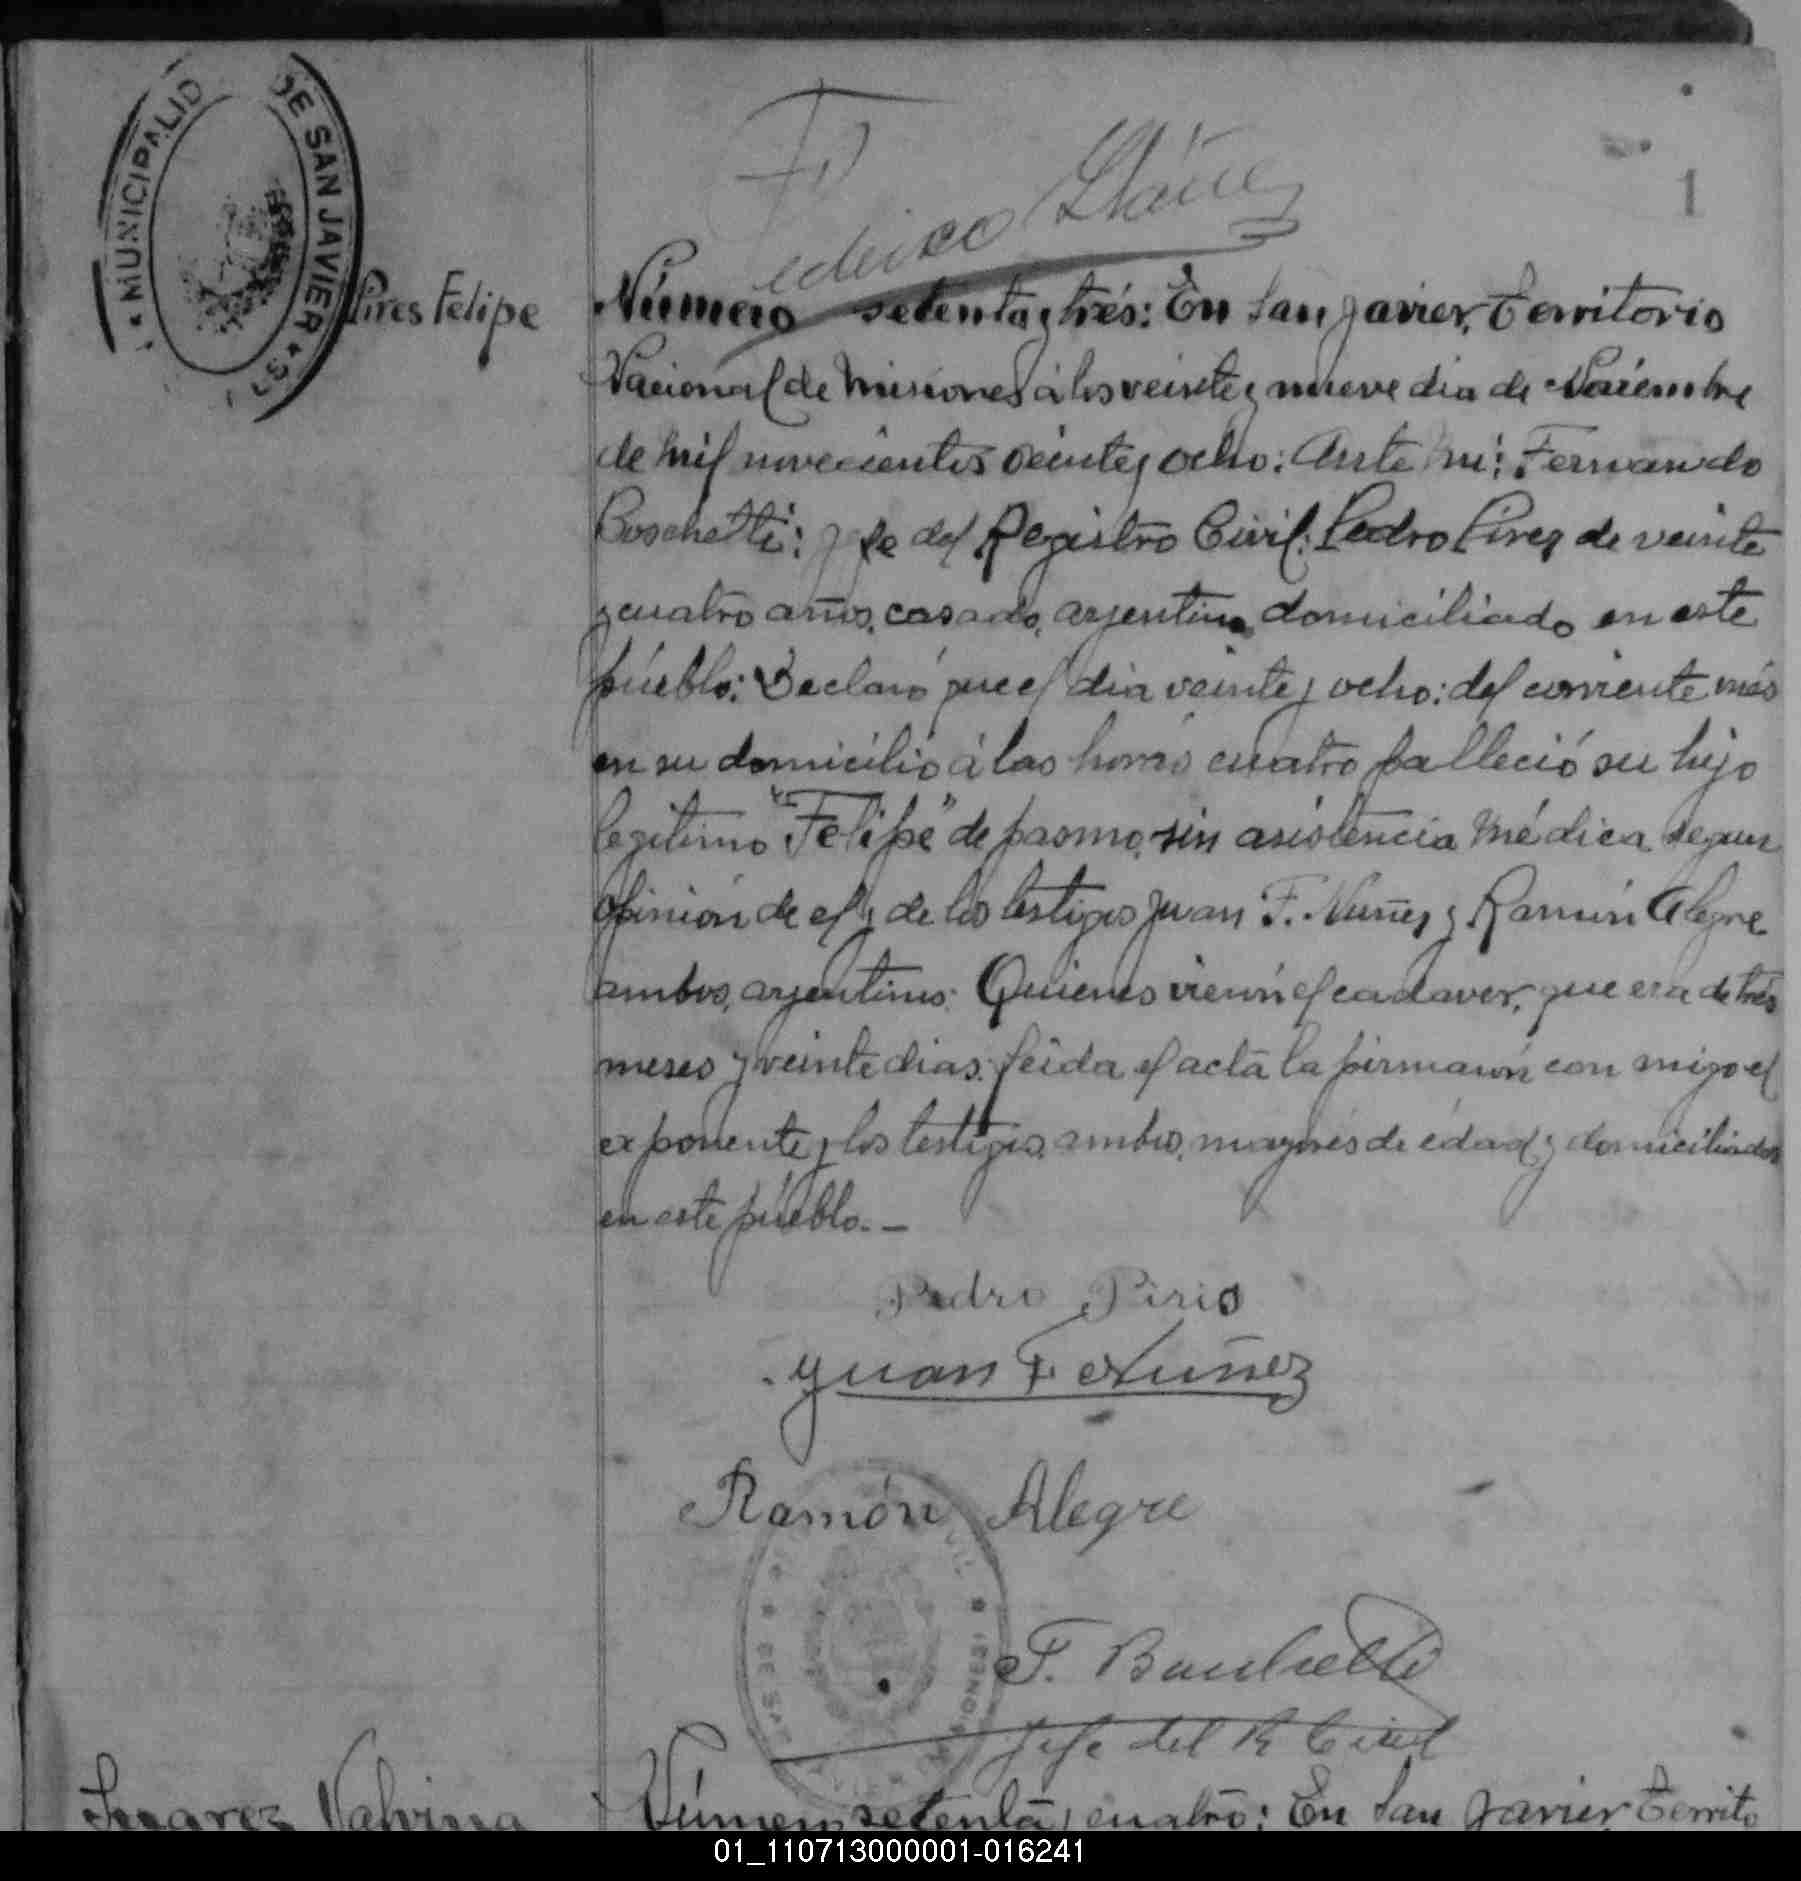 MUNICIPALID DE SAN JAVIER
1
Pires Felipe
Número setenta y trés: En San Javier, Territorio
Nacional de Misiones á los veinte y nueve dia de Noviembre
de mil novecientos veinte y ocho: Ante mi: Fernando
Boschetti: Jefe del Registro Civil: Pedro Pires de veinte
y cuatro años, casado, argentino domiciliado en este
púeblo: Declaró que el dia veinte y ocho: del corriente més
en su domicilió á las horas cuatro falleció su hijo
legitimo "Felipe" de pasmo, sin asistencia médica, segun
opinión de el y de los testigos Juan F. Nuñez y Ramón Alegre
ambos, argentinos: Quienes vierón el cadaver, que era de trés
meses y veinte dias: leida el acta la firmarón con migo el
exponente y los testigos, ambos, mayores de édad y domiciliados
en este púeblo.—
Pedro Piris
Juan F Nuñez
Ramón Alegre
F. Boschetti
Jefe del R Civil
Suarez Valvina
Número setenta y cuatro: En San Javier, Territo
01_110713000001-016241